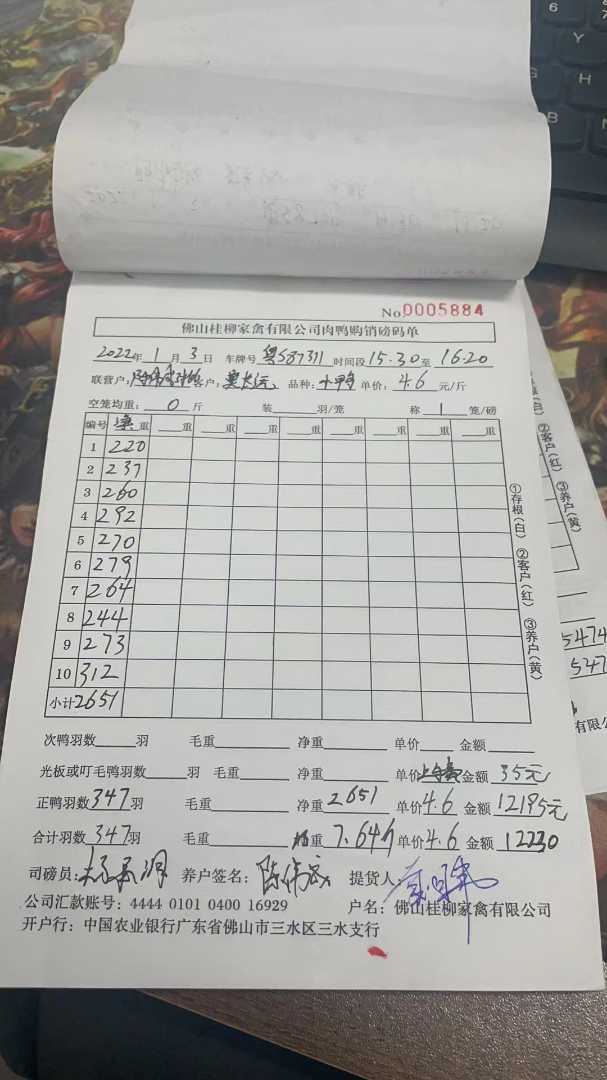 No.0005884
佛山桂柳家禽有限公司肉鸭购销磅码单
2022年1月3日 车牌号 粤S87311 时间段 15.30至 16.20
联营户: 客户: 品种: 单价: 4.6 元/斤
空笼均重: 0 斤 装 羽/笼 称 1 笼/磅
编号 重 重 重 重 重 重 重 重
1 220
2 237
3 260
4 292
5 270
6 279
7 264
8 244
9 273
10 312
小计 2651
①存根(白) ②客户(红) ③养户(黄)
次鸭羽数 羽 毛重 净重 单价 金额
光板或叮毛鸭羽数 羽 毛重 净重 单价 金额 35元
正鸭羽数 347 羽 毛重 净重 2651 单价 4.6 金额 12195元
合计羽数 347 羽 毛重 重 7.64斤 单价 4.6 金额 12230
司磅员: 养户签名: 陈伟成 提货人:
公司汇款账号: 4444 0101 0400 16929 户名: 佛山桂柳家禽有限公司
开户行: 中国农业银行广东省佛山市三水区三水支行
②客户(红) ③养户(黄)
5474
547
有限公
6
Y
G
H
B